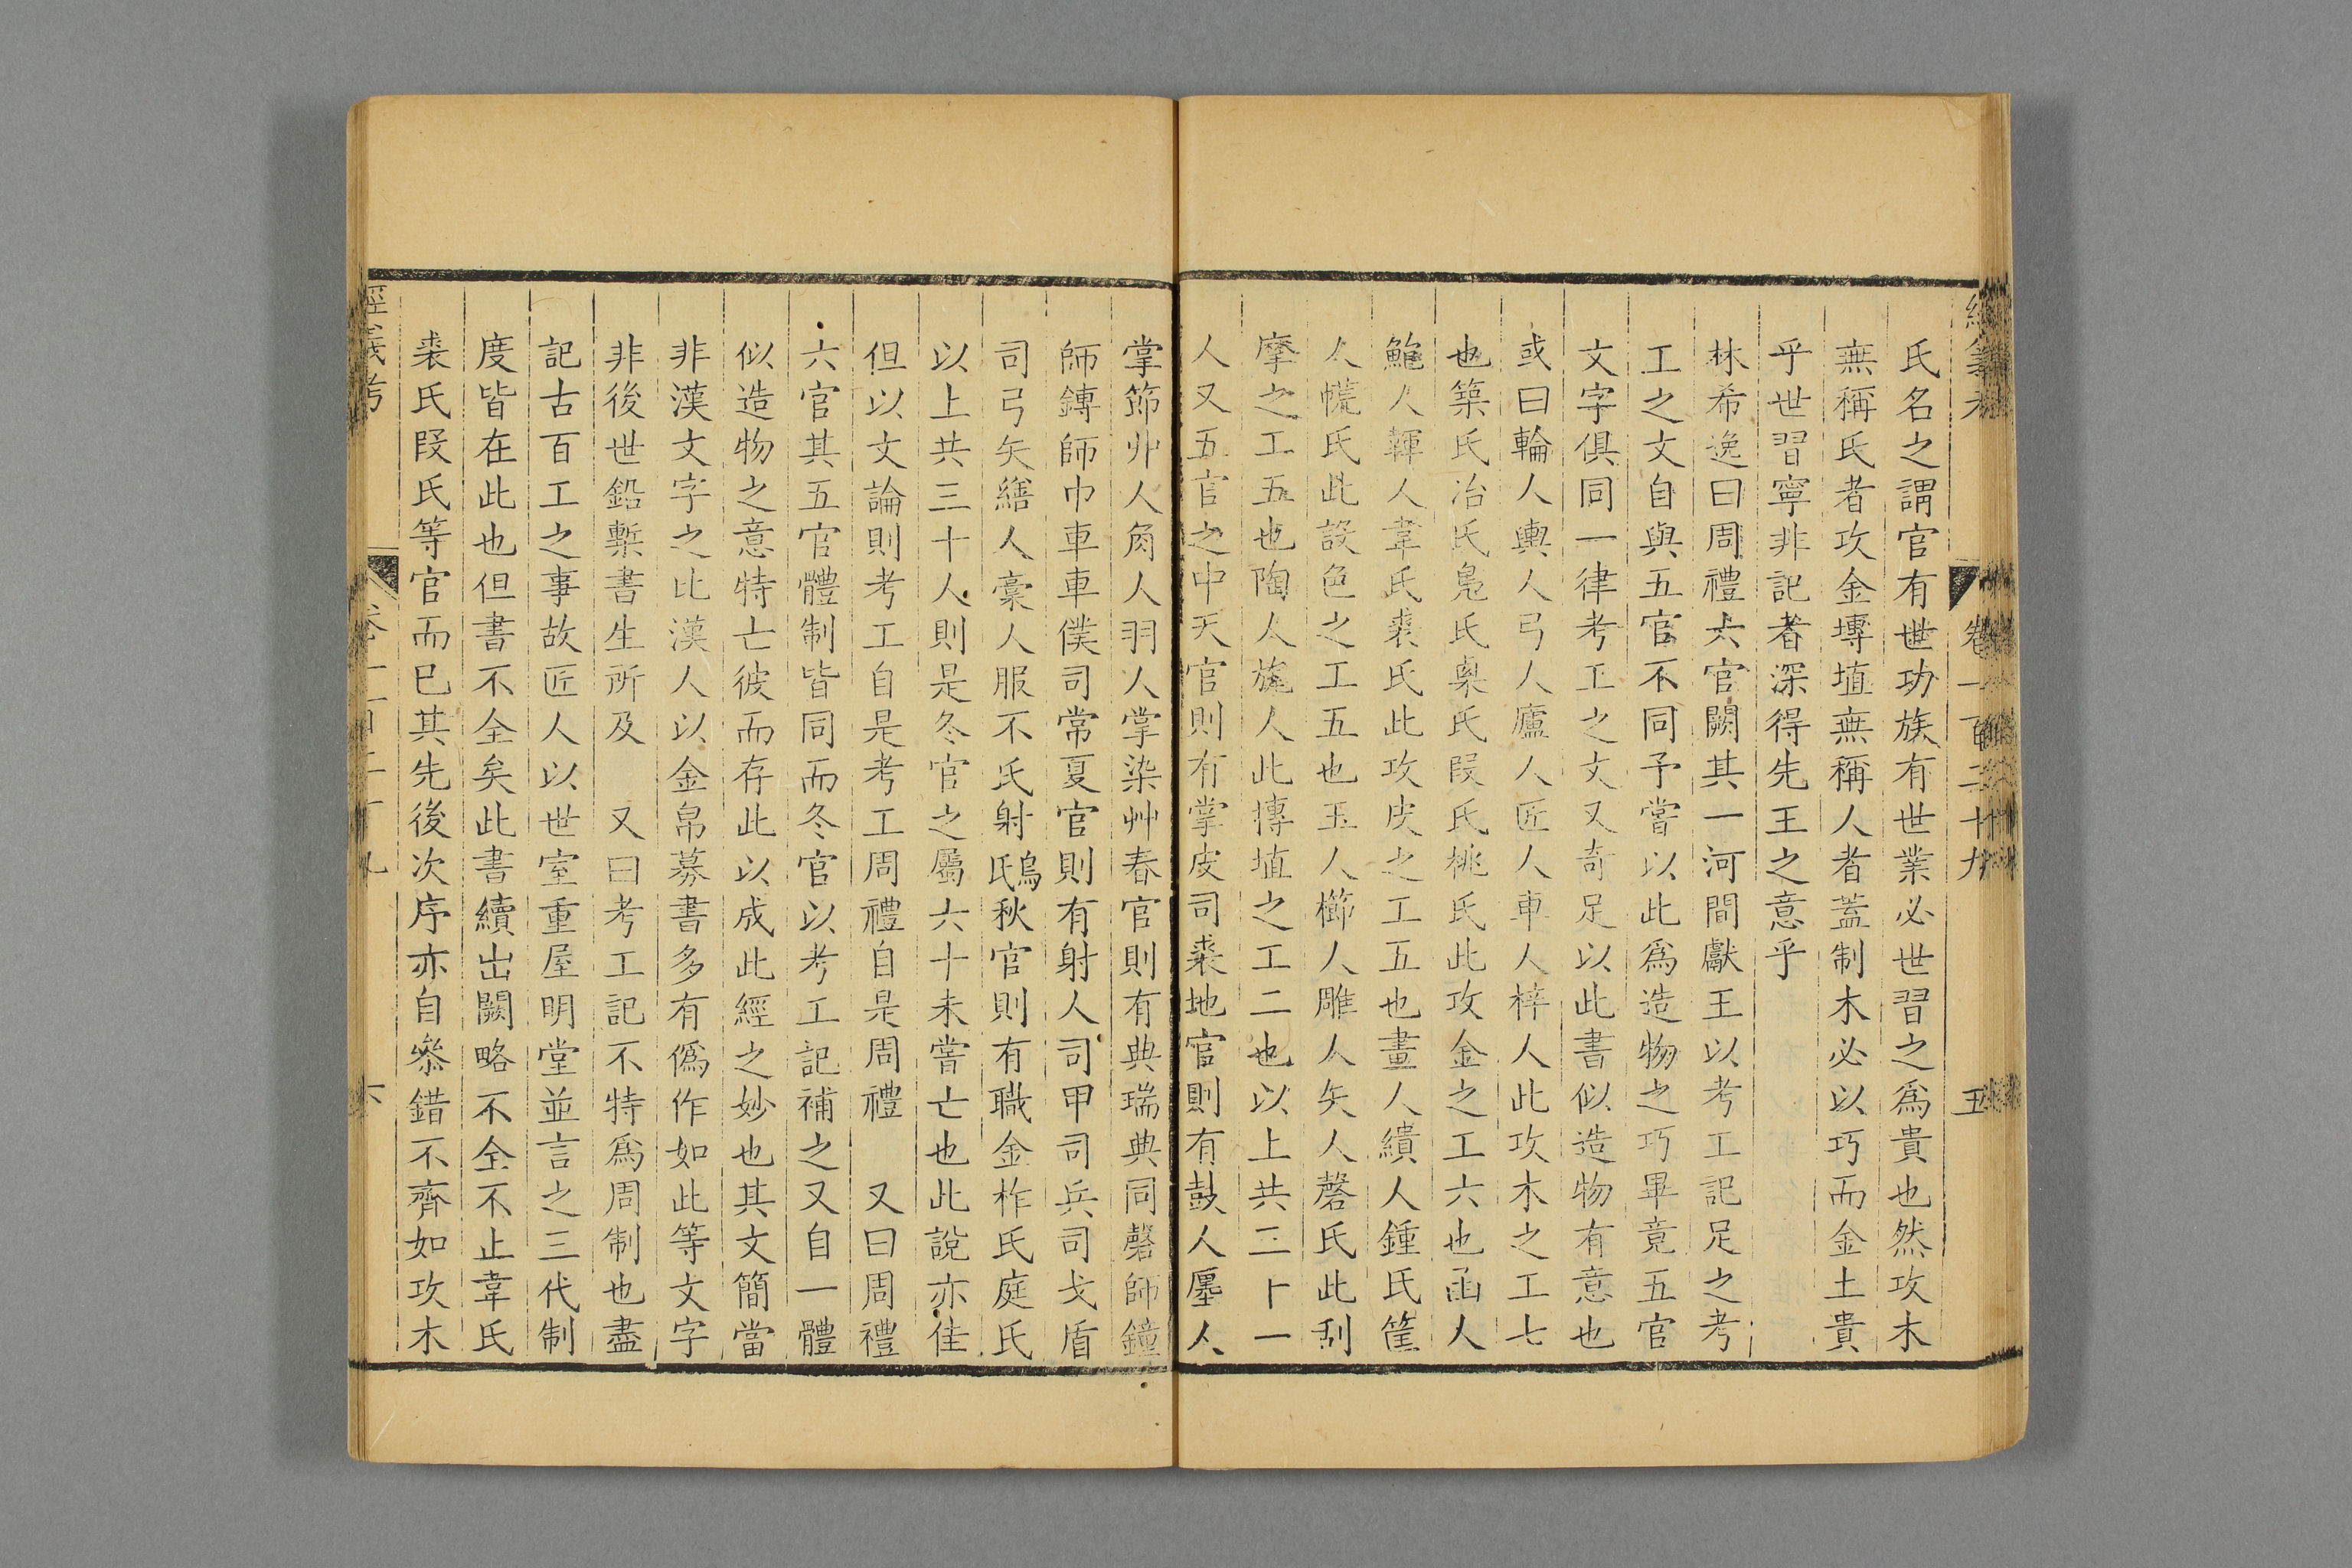 經義考 卷一百二十九 五
氏名之謂官有世功族有世業必世習之爲貴也然攻木
無稱氏者攻金塼埴無稱人者蓋制木必以巧而金土貴
乎世習寧非記者深得先王之意乎
林希逸曰周禮六官闕其一河間獻王以考工記足之考
工之文自與五官不同予嘗以此爲造物之巧畢竟五官
文字俱同一律考工之文又奇足以此書似造物有意也
或曰輪人輿人弓人廬人匠人車人梓人此攻木之工七
也築氏冶氏鳧氏㮚氏段氏桃氏此攻金之工六也函人
鮑人韗人韋氏裘氏此攻皮之工五也畫人繢人鍾氏筐
人㡛氏此設色之工五也玉人櫛人雕人矢人磬氏此刮
摩之工五也陶人旊人此摶埴之工二也以上共三十一
人又五官之中天官則有掌皮司裘地官則有鼓人廛人
掌節丱人角人羽人掌染艸春官則有典瑞典同磬師鐘
師鎛師巾車車僕司常夏官則有射人司甲司兵司戈盾
司弓矢繕人槀人服不氏射鳥氏秋官則有職金柞氏庭氏
以上共三十人則是冬官之屬六十未嘗亡也此說亦佳
但以文論則考工自是考工周禮自是周禮　又曰周禮
六官其五官體制皆同而冬官以考工記補之又自一體
似造物之意特亡彼而存此以成此經之妙也其文簡當
非漢文字之比漢人以金帛募書多有僞作如此等文字
非後世鉛槧書生所及　又曰考工記不特爲周制也盡
記古百工之事故匠人以世室重屋明堂並言之三代制
度皆在此也但書不全矣此書續出闕略不全不止韋氏
裘氏段氏等官而已其先後次序亦自參錯不齊如攻木
經義考 六